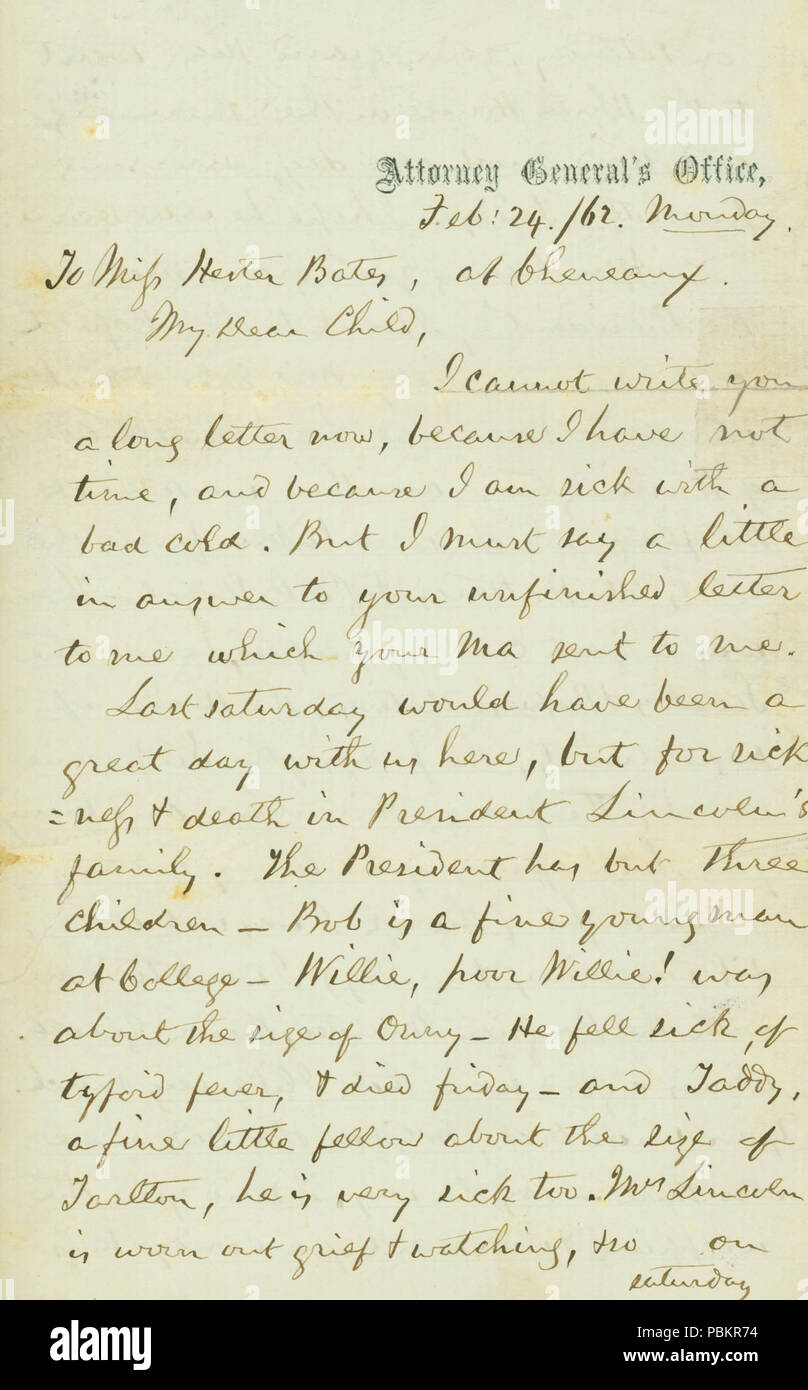 Attorney General's Office,
Feb: 24. /62. Monday.
To Miss Hester Bates, at Cheneaux.
My Dear Child,
I cannot write you
a long letter now, because I have not
time, and because I am sick with a
bad cold. But I must say a little
in answer to your unfinished letter
to me which your Ma sent to me.
Last saturday would have been a
great day with us here, but for sick
=ness & death in President Lincoln's
family. The President has but three
children — Bob is a fine young man
at College — Willie, poor Willie! was
about the size of Onny — He fell sick, of
tyfoid fever, & died friday — and Taddy,
a fine little fellow about the size of
Tarlton, he is very sick too. Mrs Lincoln
is worn out grief & watching, & so on
saturday
alamy
Image ID: PBKR74
www.alamy.com